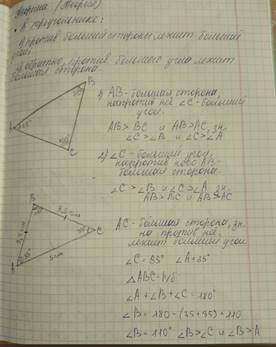 Теорема (Теория)
• В треугольнике:
1) против большей стороны лежит больший
угол
2) обратно, против большего угла лежит
большая сторона.
B
A
C
1) AB - большая сторона,
напротив неё ∠C - больший
угол.
AB > BC и AB > AC, зн.
∠C > ∠B и ∠C > ∠A
2) ∠C - больший угол,
напротив него AB -
большая сторона.
∠C > ∠B и ∠C > ∠A, зн.
AB > BC и AB > AC
B
C
A
5 см
AC - большая сторона, зн.
напротив неё
лежит больший угол.
∠C = 35° ∠A = 35°
∠A + ∠B + ∠C = 180°
∠B = 180 - (35 + 35) = 110
∠B = 110° ∠B > ∠C и ∠B > ∠A